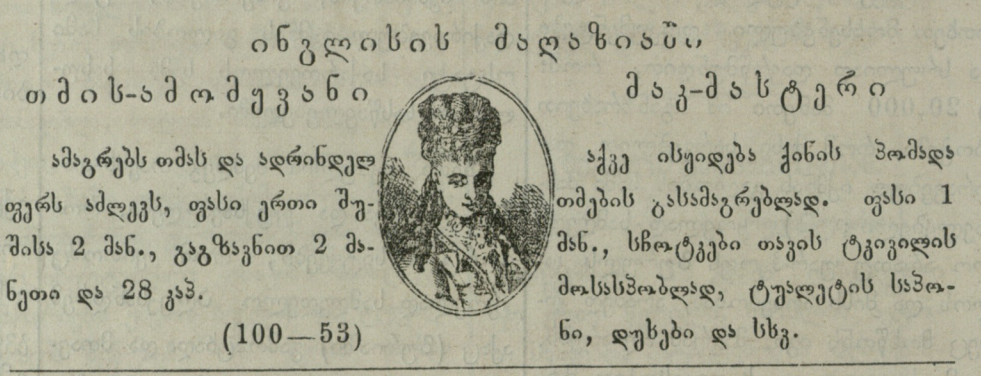 ინგლისის მაღაზიაში
თმის-ამომუვანი
მაკ-მასტერი
ამაგრებს თმას და ადრინდელ
ფერს აძლევს, ფასი ერთი შუ-
შისა 2 მან., გაგზავნით 2 მა-
ნეთი და 28 კაპ.
(100—53)
აქვე ისყიდება ქინის პომადა
თმების გასამაგრებლად. ფასი 1
მან., სჩოტკები თავის ტკივილის
მოსასპობლად, ტუალეტის საპო-
ნი, დუხები და სხვ.